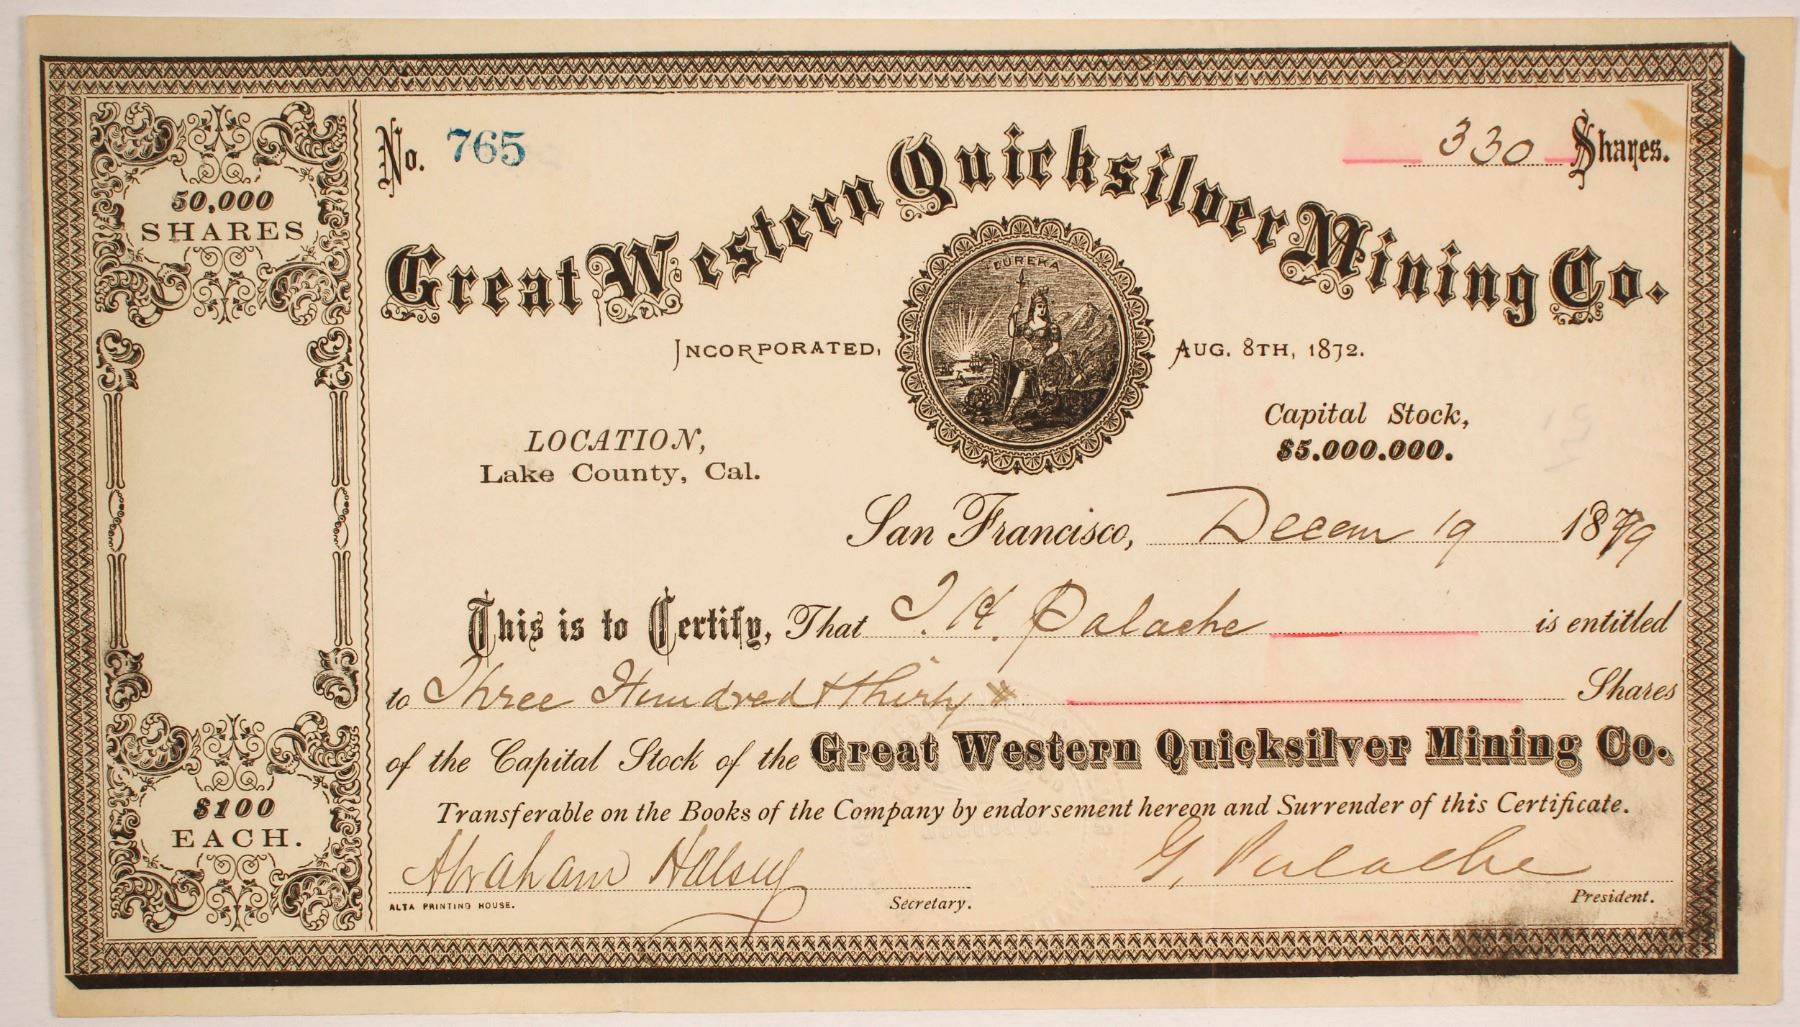 No. 765
330 Shares.
50,000
SHARES
Great Western Quicksilver Mining Co.
EUREKA
INCORPORATED, AUG. 8TH, 1872.
LOCATION,
Lake County, Cal.
Capital Stock,
$5.000.000.
San Francisco, Decem 19 1879
This is to Certify, That J. H. Palache is entitled
to Three Hundred & thirty Shares
of the Capital Stock of the Great Western Quicksilver Mining Co.
$100
EACH.
Transferable on the Books of the Company by endorsement hereon and Surrender of this Certificate.
Abraham Halsey
G. Palache
ALTA PRINTING HOUSE.
Secretary.
President.